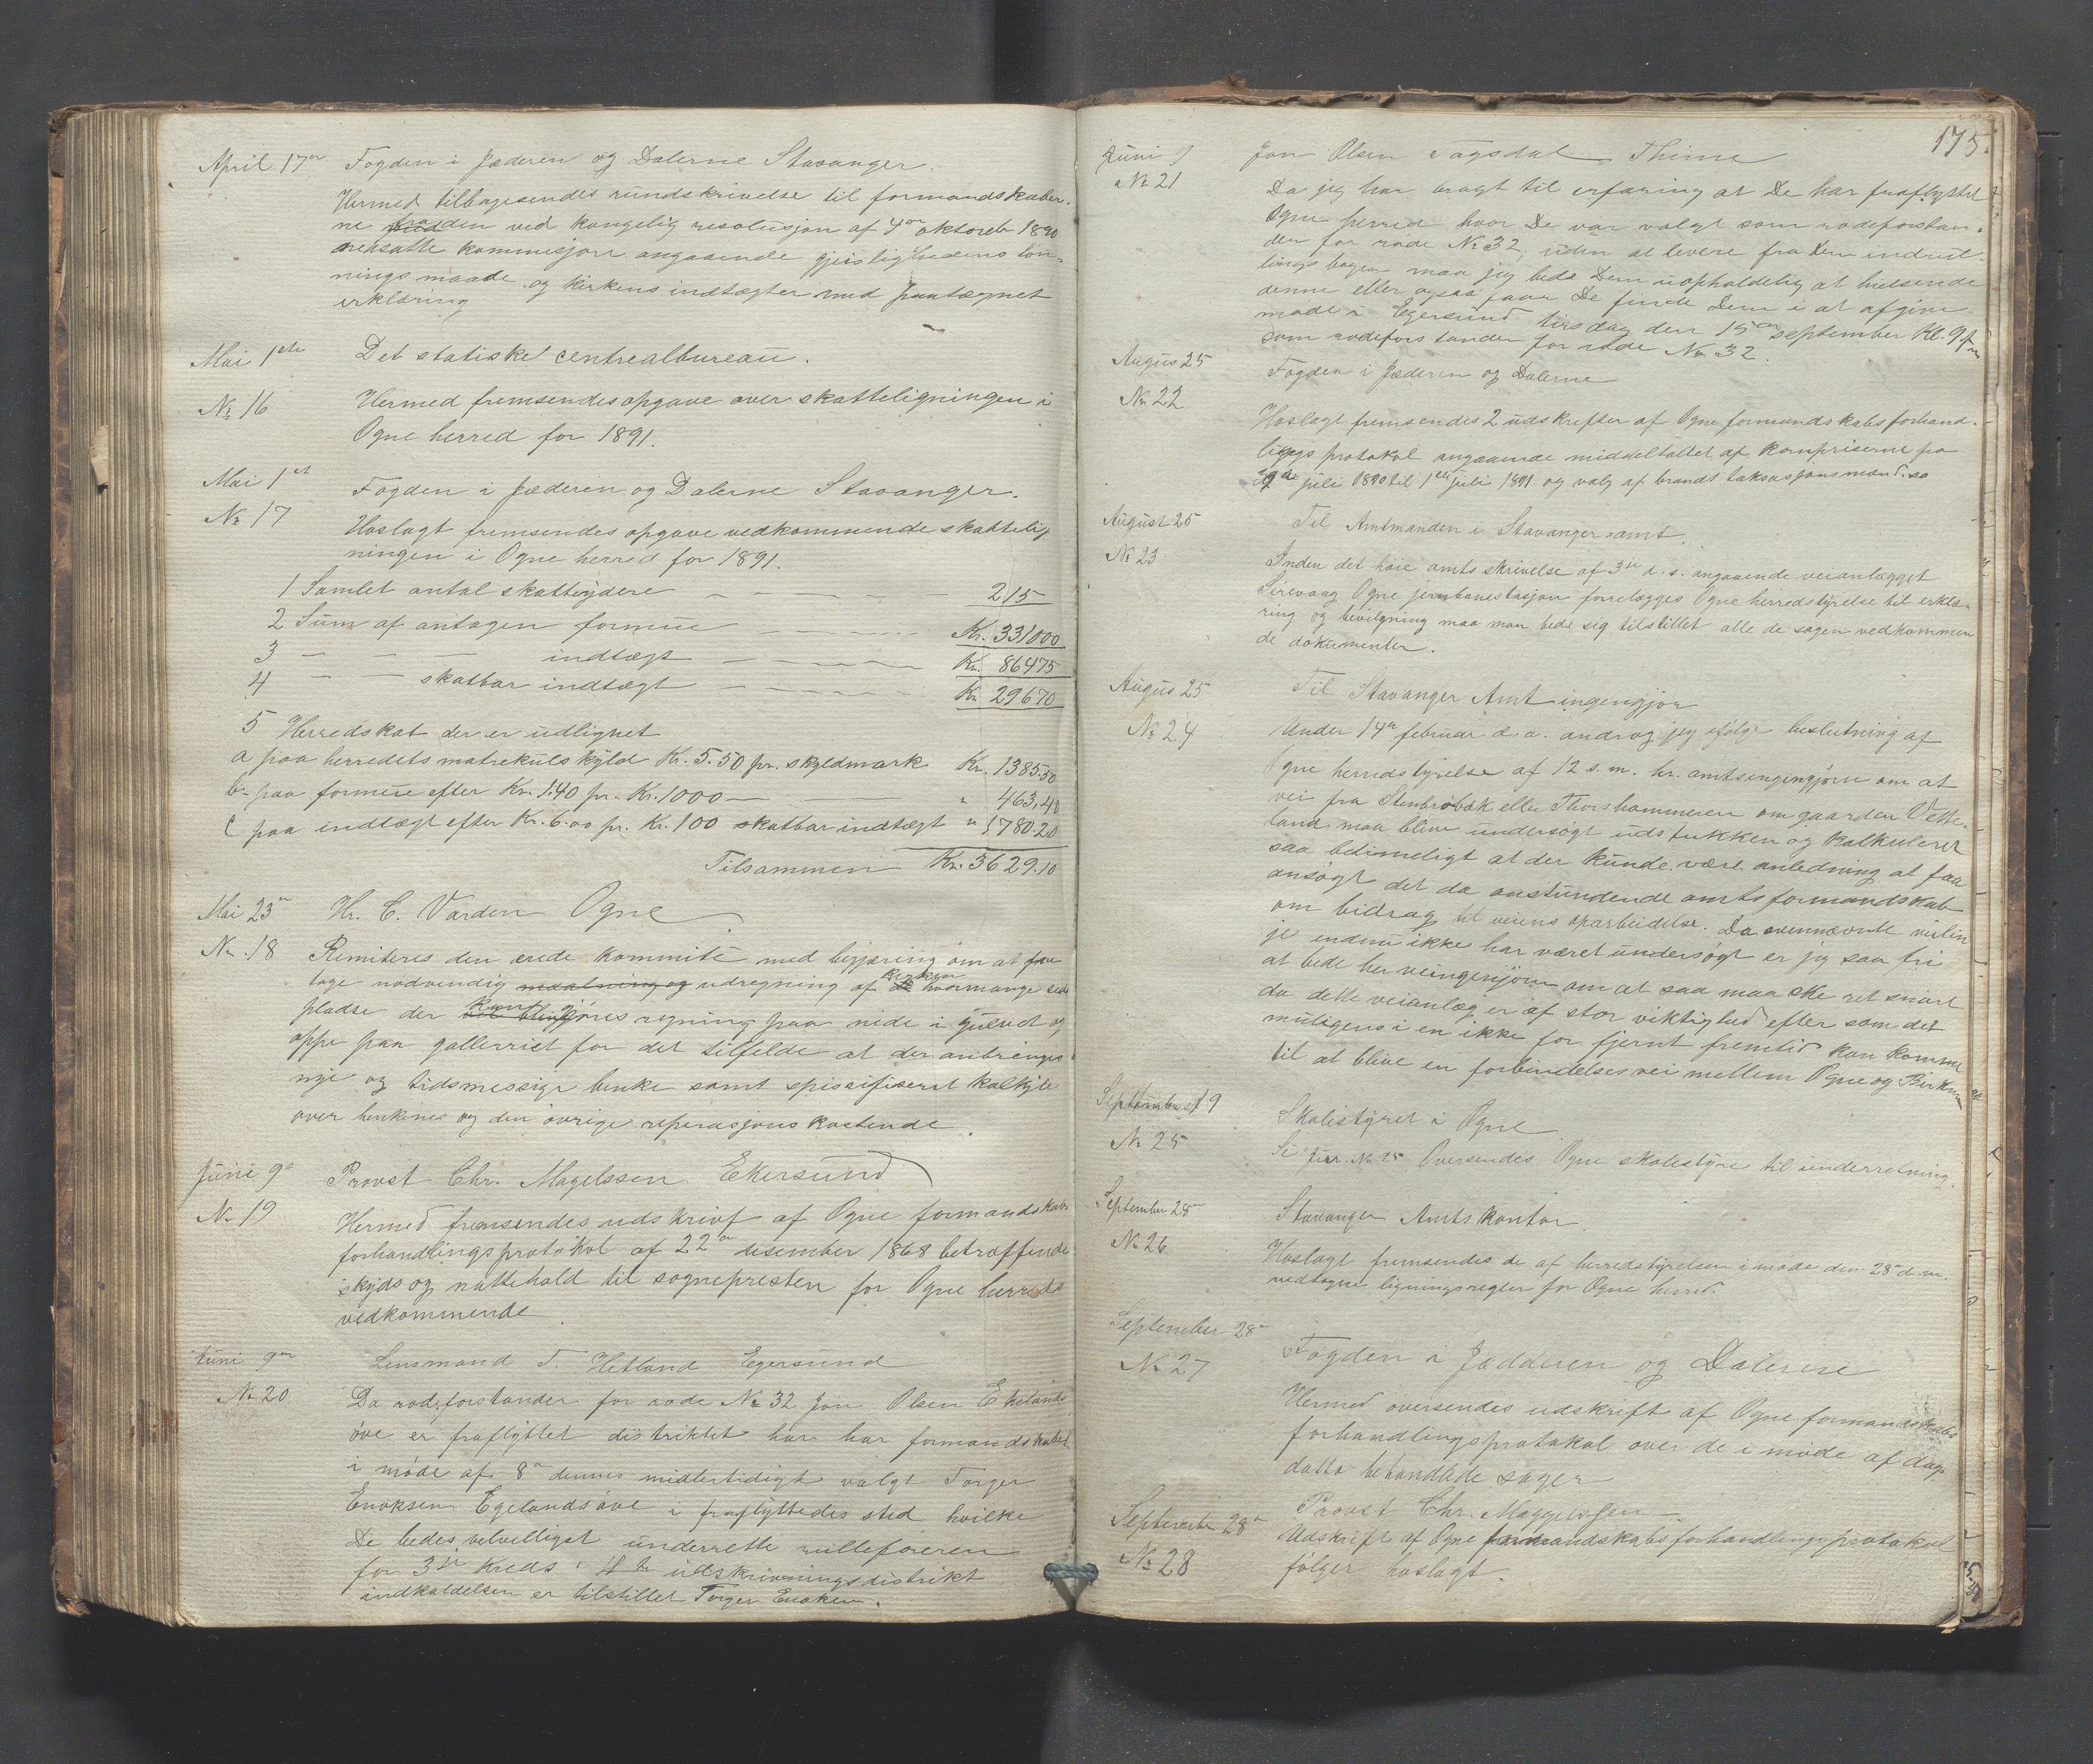 April 17de Fogden i Jæderen og Dalerne Stavanger.
Hermed tilbagesendes rundskrivelse til formandskaber-
ne fra den ved kongelig resolusjon af 4de oktober 1890
nedsatte kommisjon angaaende gjeistlighedens løn-
nings maade og kirkens indtægter med paategnet
erklæring
Mai 1ste Det statiske centrealbureau.
No 16 Hermed fremsendes opgave over skatteligningen i
Ogne herred for 1891.
Mai 1st Fogden i Jæderen og Dalerne Stavanger.
No 17 Hoslagt fremsendes opgave vedkommende skattelig
ningen i Ogne herred for 1891.
1 Samlet antal skattøydere 215
2 Sum af antagen formue Kr. 331000
3 — — — indtægt Kr. 86475
4 — — skatbar indtægt Kr 29670
5 Herredskat der er udlignet
a paa herredets matrekulskyld Kr. 5.50 pr. skyldmark Kr. 1385.50
b- paa formue efter Kr. 1.40 pr. Kr. 1000 — " 463,40
c paa indtægt efter Kr. 6.00 pr. Kr. 100 skatbar indtægt " 1780.20
Tilsammen Kr. 3629.10
Mai 23de Hr. C. Varden Ogne
No. 18 Remiteres den ærede kommité med begjæring om at fore
tage nødvendig maalning og udregning af kirken hvormange side
pladse der kan gjøres regning paa nide i gulvet og
oppe paa galleriet for det tilfelde at der anbringes
nye og tidsmessige benke samt spissifiseret kalkyle
over benkene og den øvrige reperasjons kostende.
Juni 9de Provst Chr. Magelssen Ekersund
No 19 Hermed fremsendes udskrivt af Ogne formandskabs
forhandlingsprotokol af 22de desember 1868 betræffende
skyds og nattehold til sognepresten for Ogne herreds
vedkommende.
Juni 9de Lensmand T. Hetland Egersund
No 20 Da rodeforstander for rode No 32 Jon Olsen Ekelands
øve er fraflyttet distriktet har har formandskabet
i møde af 8de dennes midlertidigt valgt Torger
Enoksen Egelandsøve i fraflyttedes sted hvilke
De bedes velvilligst underrette rulleføreren
for 3die Kreds i 4de udskrivningsdistrikt
indkaldelsen er tilstillet Torger Enoksen.
175.
Juni 9 Jon Olsen Tagsdal Thime
No 21 Da jeg har bragt til erfaring at De har fraflyttet
Ogne herred hvor De var valgt som rodeforstan-
der for rode No 32, uden at levere fra Dem indrul-
lings bogen maa jeg bede Dem uopholdelig at hidsende
denne eller ogsaa faar De finde Dem i at afgive
møde i Egersund tirsdag den 15de september Kl. 9 fm
som rodeforstander for rode No 32.
Augus 25 Fogden i Jæderen og Dalerne
No 22 Hoslagt fremsendes 2 udskrifter af Ogne formandskabsforhand-
lings protokol angaaende middeltallet af kornpriserne fra
juli 1890 til 1ste juli 1891 og valg af brands taksasjonsmænd. so
August 25 Til Amtmanden i Stavanger amt.
No 23 Inden det høie amts skrivelse af 3die d. s. angaaende veianlægget
Sirevaag Ogne jernbanestasjon forelægges Ogne herredstyrelse til erklæ-
ring og bevilgning maa man bede sig tilstillet alle de sagen vedkommen
de dokumenter.
Augus 25 Til Stavanger Amt ingengjør
No 24 Under 14de februar d. a. androg jeg ifølge beslutning af
Ogne herredstyrelse af 12 s. m. hr. amtsengengjøren om at
vei fra Stenbrobæk eller Thorshammeren om gaarden Vette-
land maa blive undersøgt udstukken og kalkuleret
saa betimeligt at der kunde være anledning at faa
ansøgt det da anstundende amtsformandskab
om bidrag til veiens oparbeidelse. Da ovennævnte veilin
je endnu ikke har været undersøgt er jeg saa fri
at bede her veingenjøren om at saa maa ske ret snart
da dette veianlæg er af stor viktighed efter som det
muligens i en ikke for fjernt fremtid kan komme
til at blive en forbindelsesvei mellem Ogne og Birkrem
September 19 Skolestyret i Ogne.
No 25 Se Jur. No 25 Oversendes Ogne skolestyre til underretning.
September 28de Stavanger Amtskontor
No 26 Hoslagt fremsendes de af herredstyrelsen i møde den 28de d. m.
vedtagne ligningsregler for Ogne herred.
September 28de Fogden i Jædderen og Dalerne
No 27 Hermed oversendes udskrift af Ogne formandskabs
forhandlingsprotokol over de i møde af dags
datto behandlede sager
September 28de Provst Chr. Maggelssen
No 28 Udskrift af Ogne formandskabsforhandlingsprotokol
følger hoslagt.